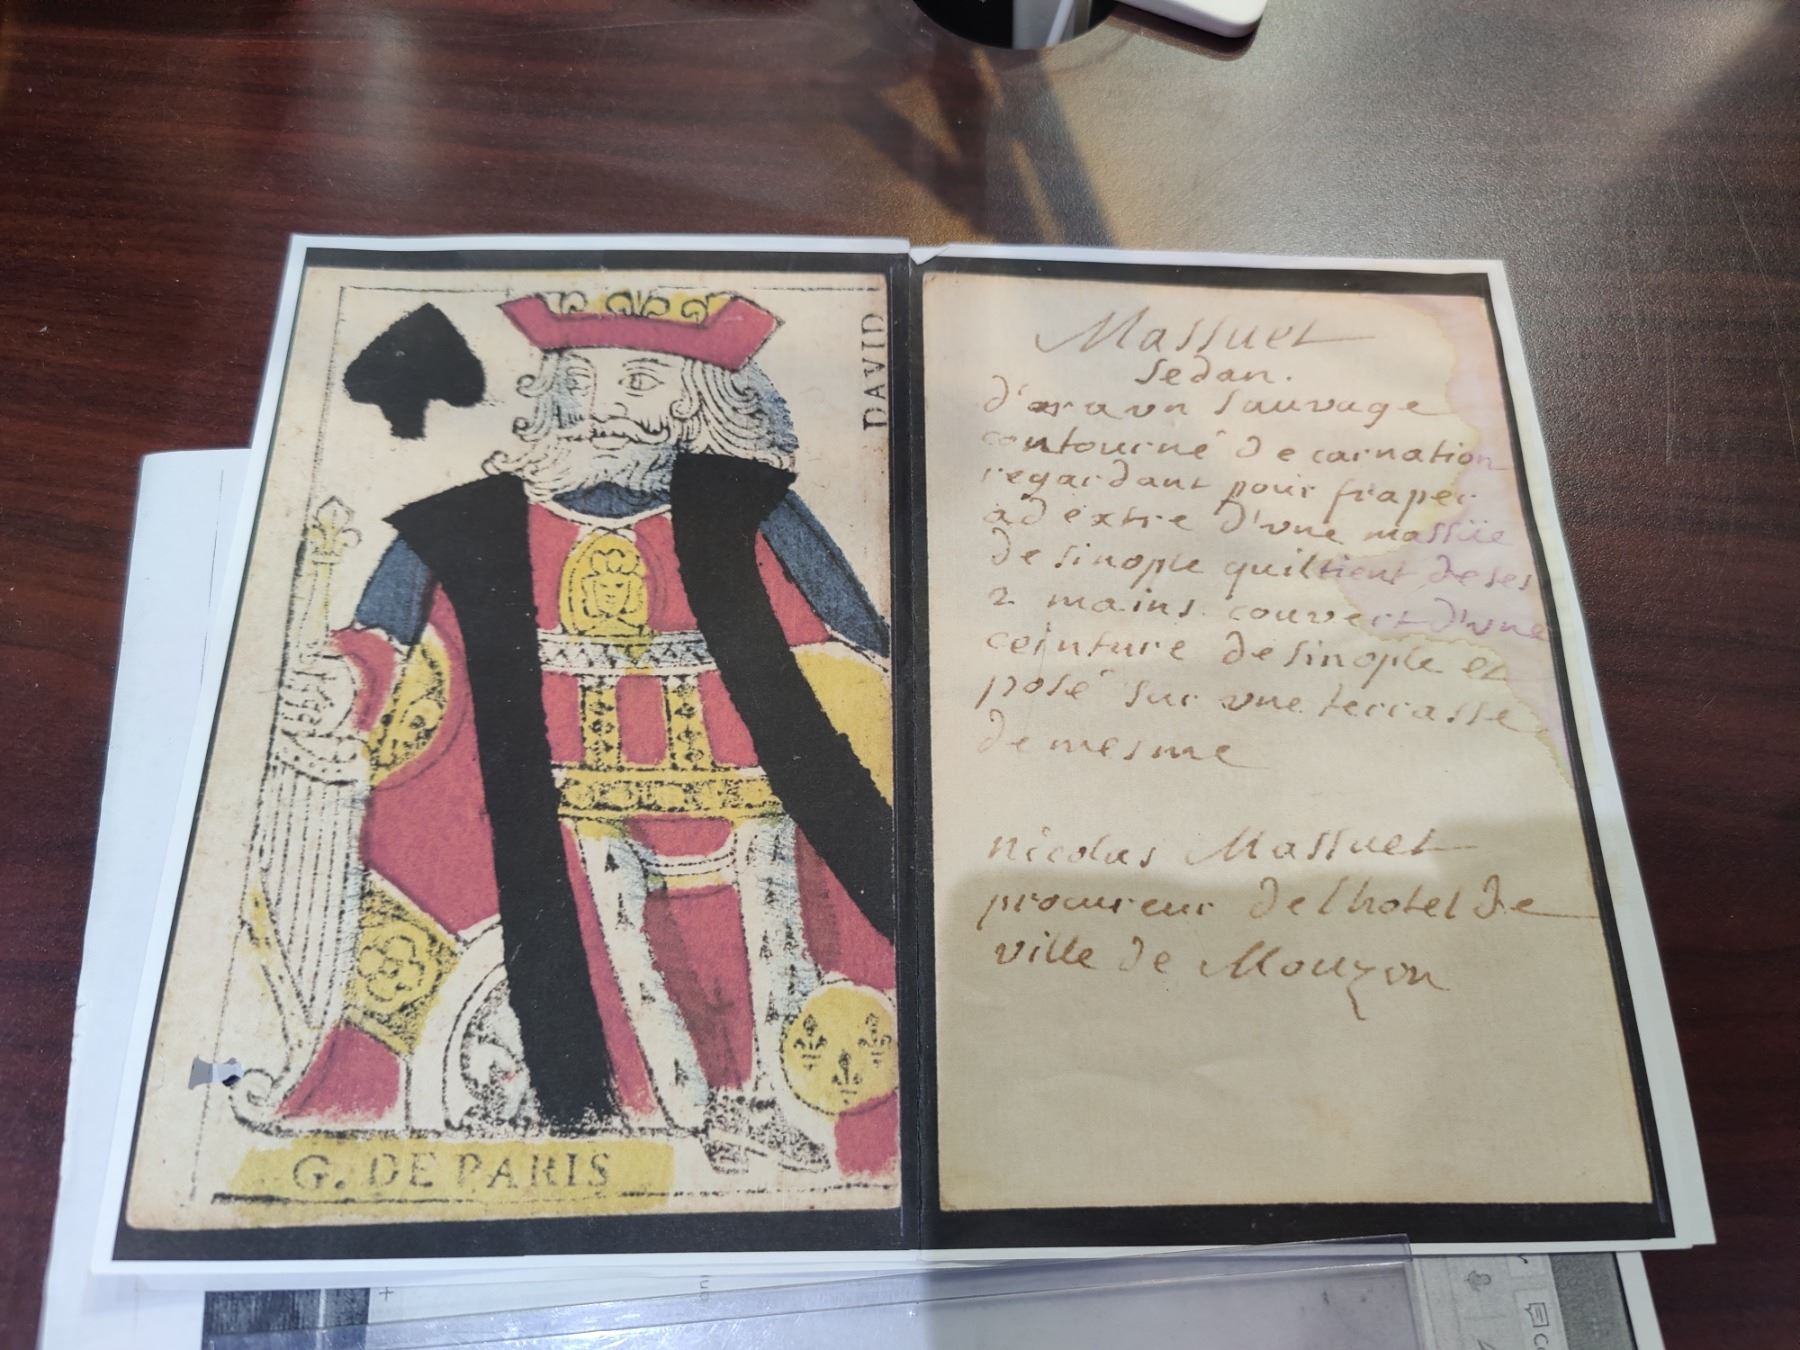 DAVID
G. DE PARIS
Massuet
Sedan.
d'or a vn sauvage
contourné de carnation
regardant pour fraper
adextre d'vne massüe
de sinople quil tient de ses
2 mains couvert d'vne
ceinture de sinople et
posé sur vne terrasse
de mesme
nicolas Massuet
procureur de lhotel de
ville de Mouzon